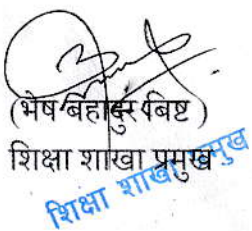 (भेष बहादुर बिष्ट )
शिक्षा शाखा प्रमुख
शिक्षा शाखा प्रमुख